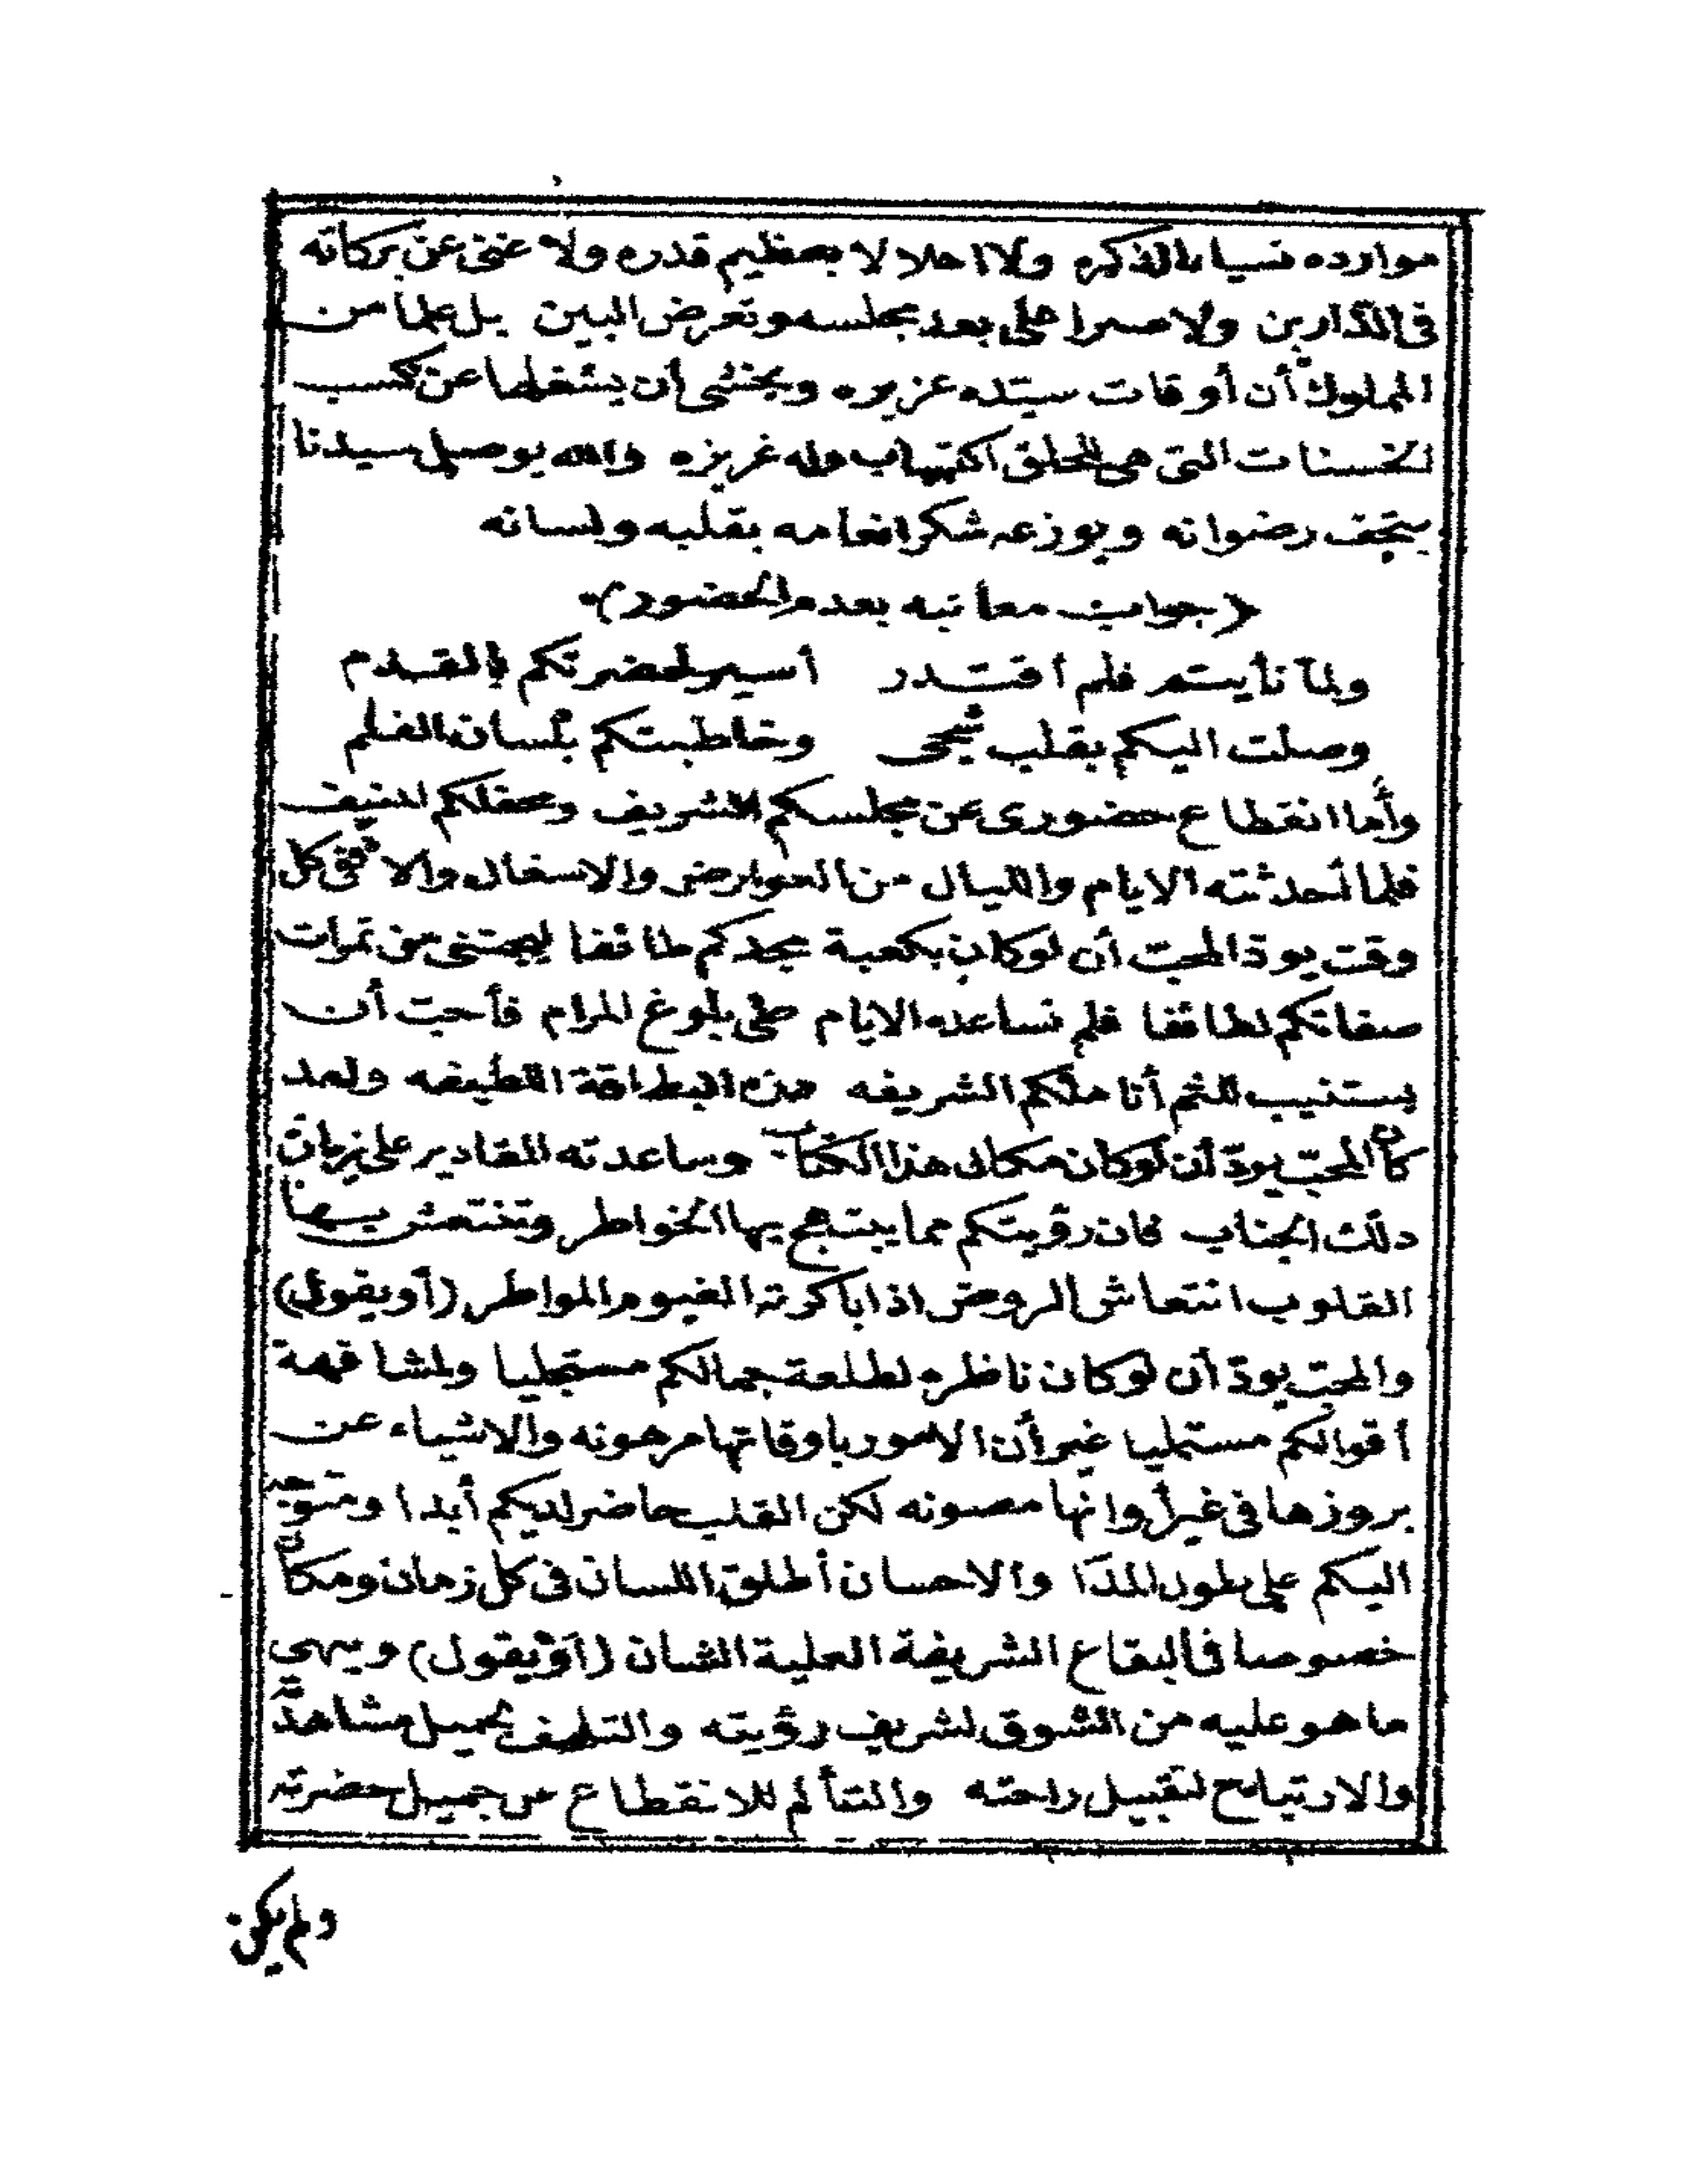 موارده نسيانا لذكره ولا اخلالا بعظيم قدره ولا غنى عن بركاته
فى الدارين ولا صبرا على بعد مجلسه وتعرض البين بل علما من
المملوك أن أوقات سيده عزيزه ويخشى أن يشغلها عن كسب
الحسنات التى هى للخلق اكتساب وله غريزه والله يوصل سيدنا
بتحف رضوانه ويوزعه شكر انعامه بقلبه ولسانه
(جواب معاتبه بعدم الحضور)
ولما نأيتم فلم أقتدر أسير لحضرتكم بالقدم
وصلت اليكم بقلب شجى وخاطبتكم بلسان القلم
وأما انقطاع حضورى عن مجلسكم الشريف ومحفلكم المنيف
فلما أحدثته الايام والليال من العوارض والاشغال والا ففى كل
وقت يود المحب أن لو كان بكعبة مجدكم طائفا ليجتنى من ثمرات
صفاتكم لطائفا فلم تساعده الايام على بلوغ المرام فأحب أن
يستنيب للثم أناملكم الشريفه هذه البطاقة اللطيفه ولقد
كان المحب يود أن لو كان مكان هذا الكتاب وساعدته المقادير على
ذلك الجناب فان رؤيتكم مما يبتهج بها الخواطر وتنتعش بها
القلوب انتعاش الروض اذا باكرته الغيوم المواطر (أو يقول)
والمحب يود أن لو كان ناظره لطلعة جمالكم مستجليا ولمشافهة
أقوالكم مستمليا غير أن الامور باوقاتها مرهونه والاشياء عن
بروزها فى غير أوانها مصونه لكن القلب حاضر لديكم أبدا ومتوجه
اليكم على طول المدا والاحسان أطلق اللسان فى كل زمان ومكان
خصوصا فى البقاع الشريفة العلية الشان (أو يقول) وينهى
ما هو عليه من الشوق لشريف رؤيته والتلهف لجميل مشاهدته
والارتياح لتقبيل راحته والتألم للانقطاع عن جميل حضرته
ولم يكن